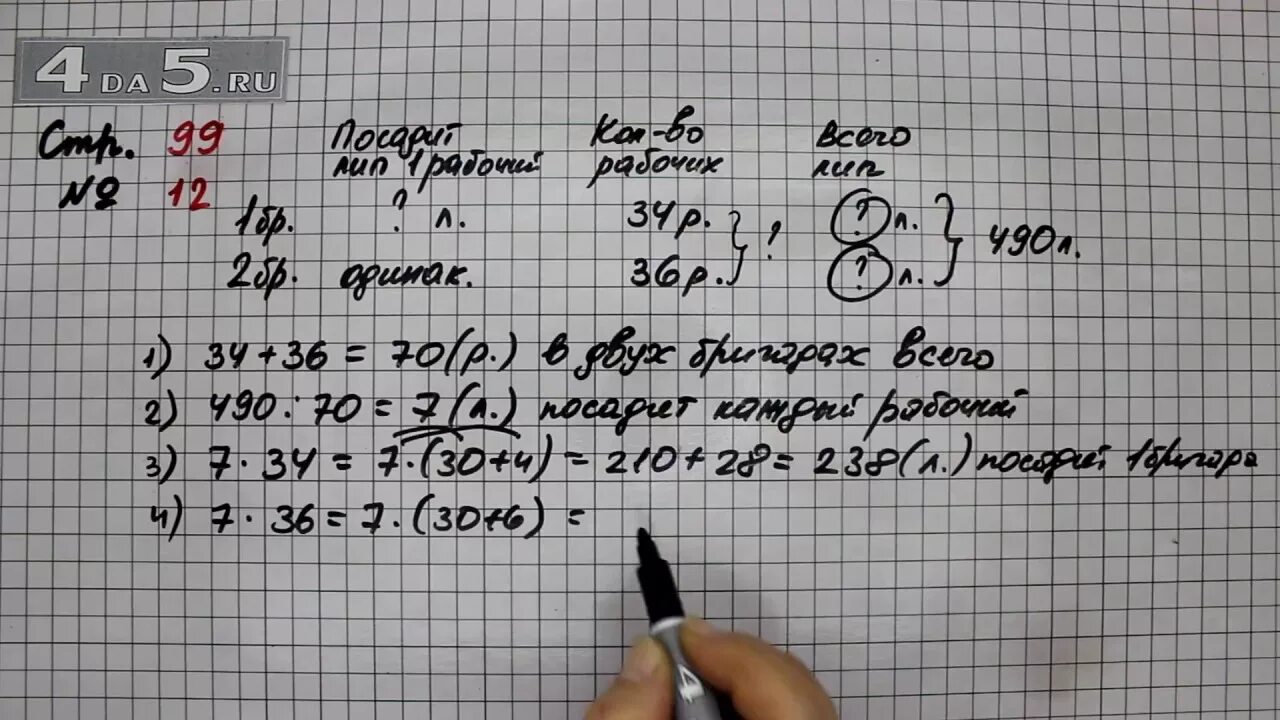 4DA5.RU
Стр. 99
№ 12
Посадит лип 1 рабочий
Кол-во рабочих
Всего лип
1бр. ? л. 34р. } ? ? л. } 490л.
2бр. одинак. 36р. ? л.
1) 34 + 36 = 70 (р.) в двух бригадах всего
2) 490 : 70 = 7 (л.) посадит каждый рабочий
3) 7 · 34 = 7 · (30+4) = 210 + 28 = 238 (л.) посадит 1 бригада
4) 7 · 36 = 7 · (30+6) =